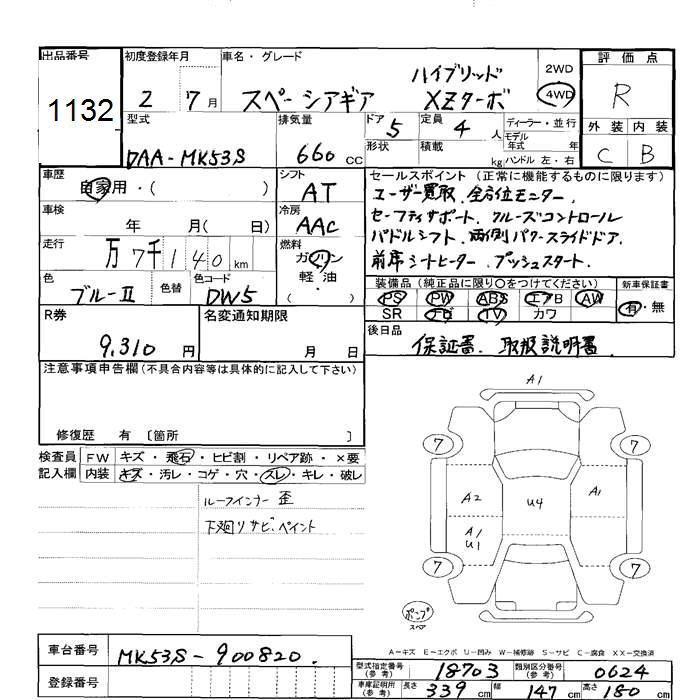 出品番号
1132
初度登録年月
2 7月
車名・グレード
スペーシアギア ハイブリッド XZターボ
2WD
4WD
評価点
R
外装 内装
C B
型式
DAA-MK53S
排気量
660 CC
ドア 5
定員 4 人
形状
積載 kg
ディーラー・並行
モデル年式 年
ハンドル 左・右
車歴
自家用・( )
シフト
AT
セールスポイント (正常に機能するものに限ります)
ユーザー買取、全方位モニター、
セーフティサポート、クルーズコントロール
パドルシフト、両側パワースライドドア、
前席シートヒーター、プッシュスタート、
車検
年 月( 日)
冷房
AAC
走行
万 7千 140 km
燃料
ガソリン
軽油
( )
色
ブルーII
色替
色コード
DW5
装備品 (純正品に限り○をつけてください)
PS PW ABS エアB AW
SR ナビ TV カワ
新車保証書
有・無
R券
9,310 円
名変通知期限
月 日
後日品
保証書、取扱説明書
注意事項申告欄 (不具合内容等は具体的に記入して下さい)
修復歴 有 〔箇所 〕
検査員記入欄
FW キズ・飛石・ヒビ割・リペア跡・×要
内装 キズ・汚レ・コゲ・穴・スレ・キレ・破レ
ルーフインナー歪
下廻りサビ、ペイント
A1
7 7
A2 U4 A1
A1
U1
7 7
ポンプ
スペア
A−キズ E−エクボ U−凹み W−補修跡 S−サビ C−腐食 XX−交換済
車台番号
MK53S-900820.
登録番号
型式指定番号(参考) 18703
類別区分番号(参考) 0624
車庫証明用(参考) 長さ 339 cm 幅 147 cm 高さ 180 cm